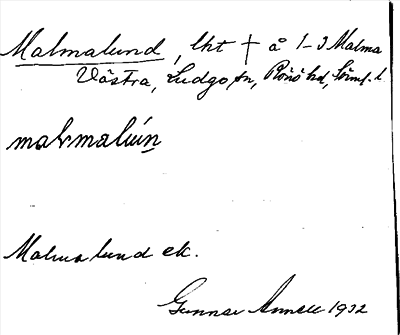 Malmalund, lht † å 1-3 Malma
Västra, Ludgo sn, Rönö hd, Sörml. l.
malmalún̲
Malmalund ek.
Gunnar Annell 1932